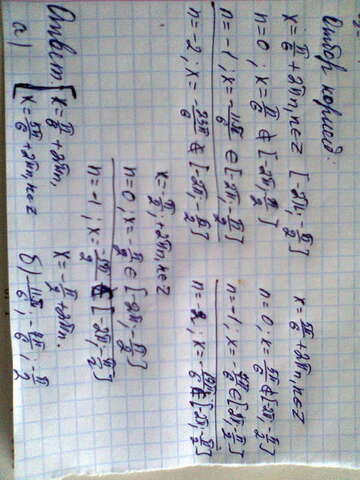 Отбор корней:
x = π/6 + 2πn, n∈z [-2π; -π/2]
n=0; x = π/6 ∉ [-2π; -π/2]
n=-1; x = -11π/6 ∈ [-2π; -π/2]
n=-2; x = -23π/6 ∉ [-2π; -π/2]
x = 5π/6 + 2πn, n∈z
n=0; x = 5π/6 ∉ [-2π; -π/2]
n=-1; x = -7π/6 ∈ [-2π; -π/2]
n=-2; x = -19π/6 ∉ [-2π; -π/2]
x = -π/2 + 2πn, n∈z
n=0; x = -π/2 ∈ [-2π; -π/2]
n=-1; x = -5π/2 ∉ [-2π; -π/2]
Ответ: [ x = π/6 + 2πn, x = -π/2 + 2πn.
а) [ x = 5π/6 + 2πn, n∈z б) -11π/6; -7π/6; -π/2